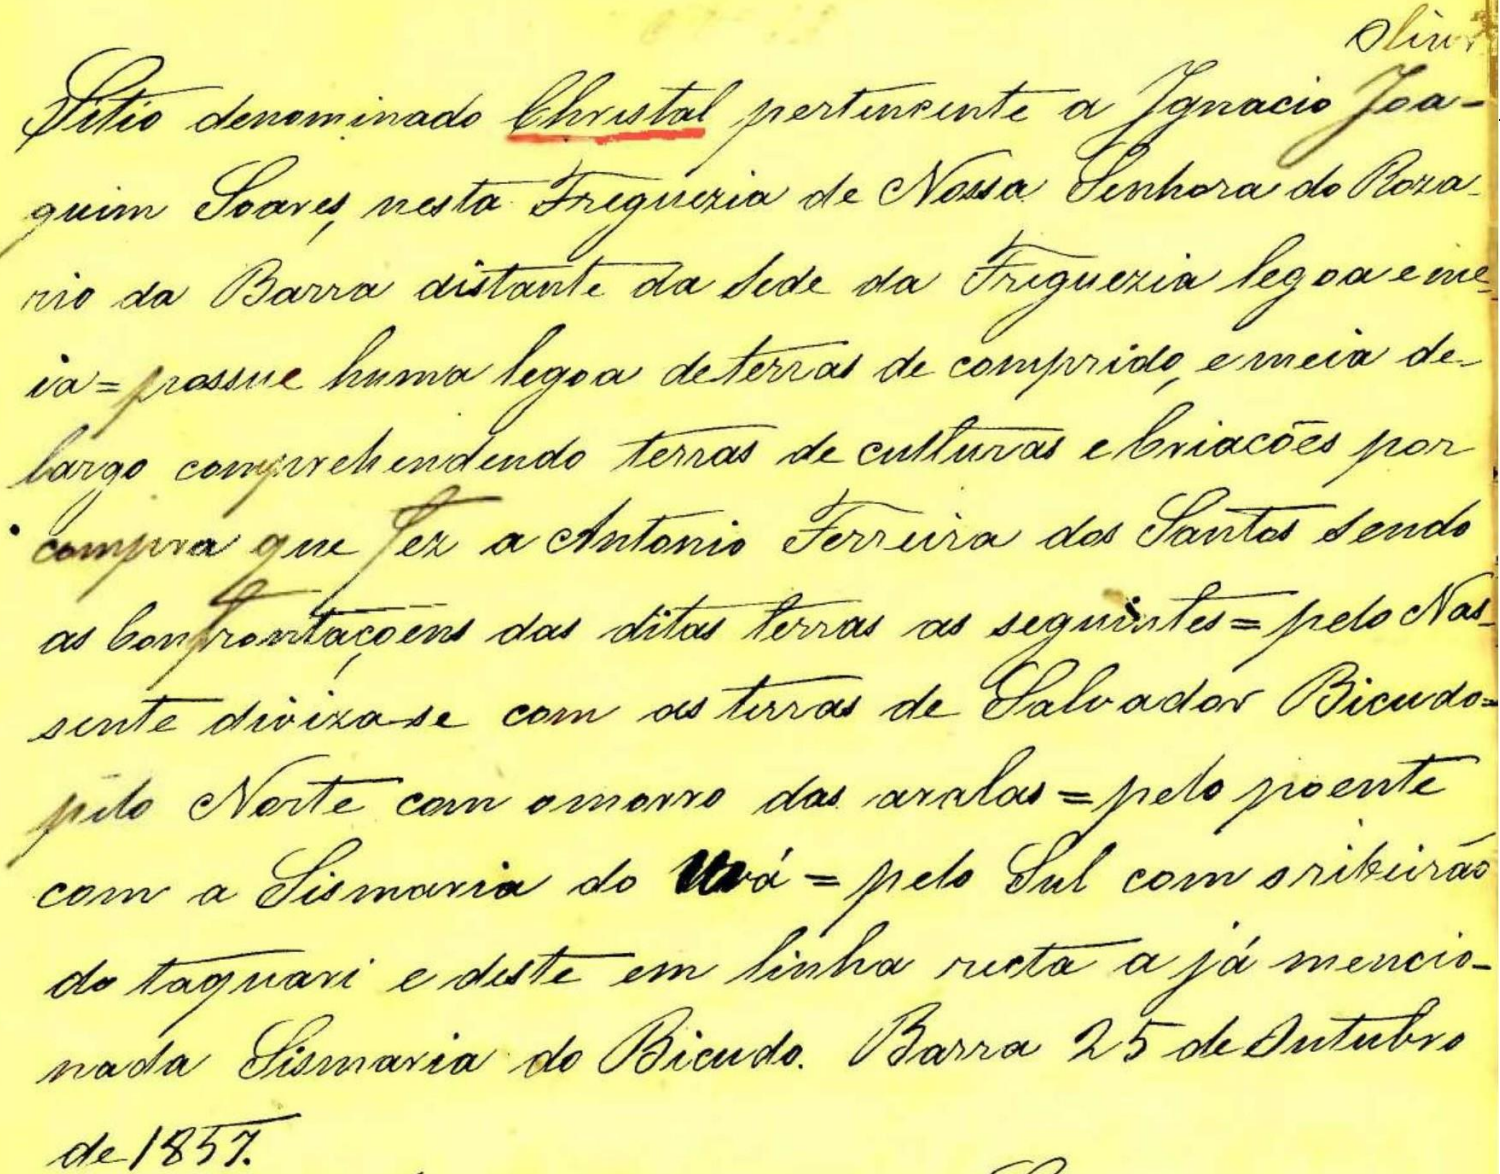 Sitio denominado Christal pertencente a Ignacio Joa-
quim Soares, nesta Freguezia de Nossa Senhora do Roza-
rio da Barra distante da Sede da Freguezia legoa e me-
ia = possue huma legoa de terras de comprido, e meia de-
largo comprehendendo terras de culturas e Criacões por
compra que fez a Antonio Ferreira dos Santos sendo
as Confrontaçoens das ditas terras as seguintes = pelo Nas-
sente diviza-se com as terras de Salvador Bicudo =
pelo Norte com o morro das araras = pelo poente
com a Sismaria do = pelo Sul com o ribeirão
do taquari e deste em linha recta a já mencio-
nada Sismaria do Bicudo. Barra 25 de Outubro
de 1857.